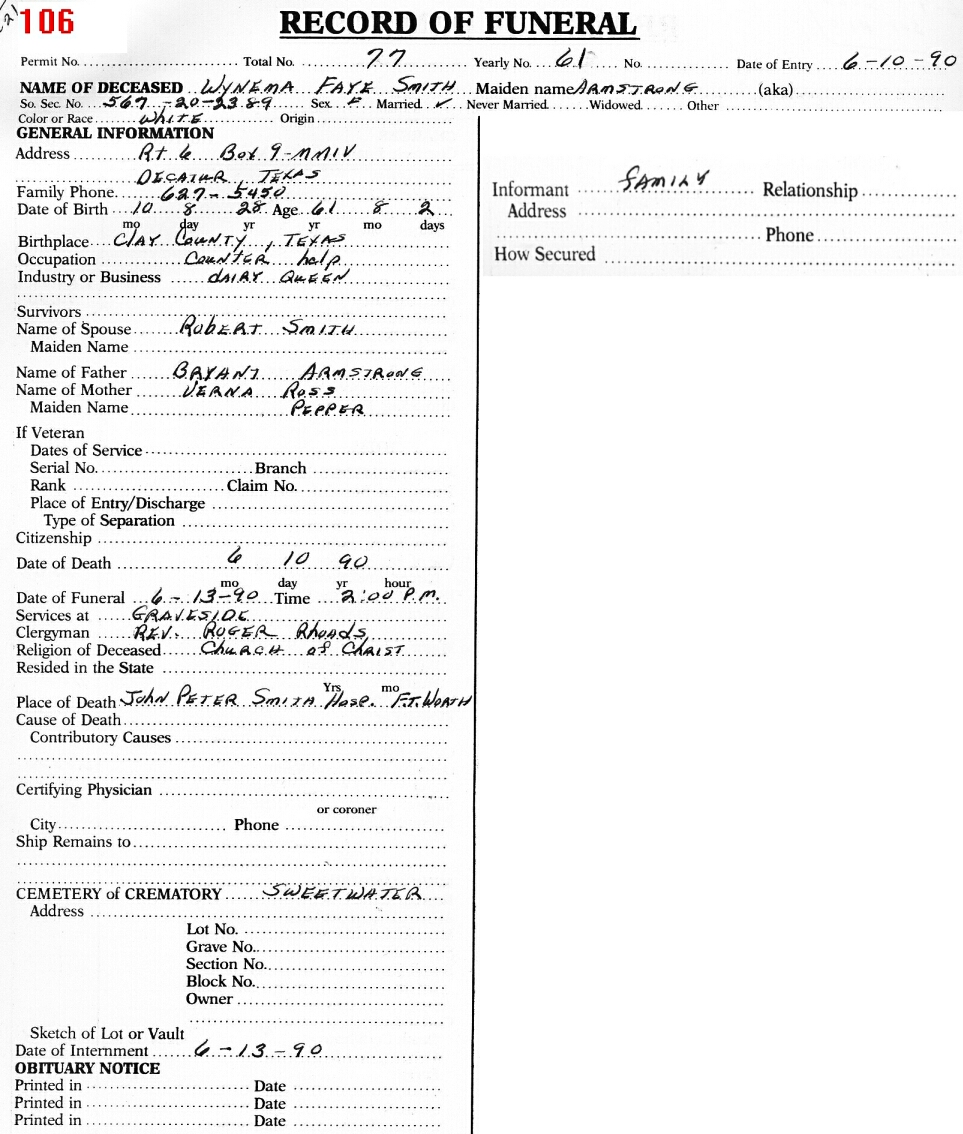 21
106
RECORD OF FUNERAL
Permit No. Total No. 77 Yearly No. 61 No. Date of Entry 6-10-90
NAME OF DECEASED WYNEMA FAYE SMITH Maiden name ARMSTRONG (aka)
So. Sec. No. 567-20-2389 Sex F Married ✓ Never Married Widowed Other
Color or Race WHITE Origin
GENERAL INFORMATION
Address Rt 6 Box 9-MMIV
DECATUR, TEXAS
Family Phone 627-5450
Date of Birth 10 8 28 Age 61 8 2
mo day yr yr mo days
Birthplace CLAY COUNTY, TEXAS
Occupation COUNTER help
Industry or Business DAIRY QUEEN
Survivors
Name of Spouse RobERT SMITH
Maiden Name
Name of Father BRYANT ARMSTRONG
Name of Mother VERNA ROSS
Maiden Name PEPPER
If Veteran
Dates of Service
Serial No. Branch
Rank Claim No.
Place of Entry/Discharge
Type of Separation
Citizenship
Date of Death 6 10 90
mo day yr hour
Date of Funeral 6-13-90 Time 2:00 P.M.
Services at GRAVESIDE
Clergyman REV. ROGER Rhoads
Religion of Deceased ChURCH of ChRIST
Resided in the State
Yrs mo
Place of Death John PETER SMITH Hosp. FT. WORTH
Cause of Death
Contributory Causes
Certifying Physician
or coroner
City Phone
Ship Remains to
CEMETERY of CREMATORY SWEETWATER
Address
Lot No.
Grave No.
Section No.
Block No.
Owner
Sketch of Lot or Vault
Date of Internment 6-13-90
OBITUARY NOTICE
Printed in Date
Printed in Date
Printed in Date
Informant FAMILY Relationship
Address
Phone
How Secured